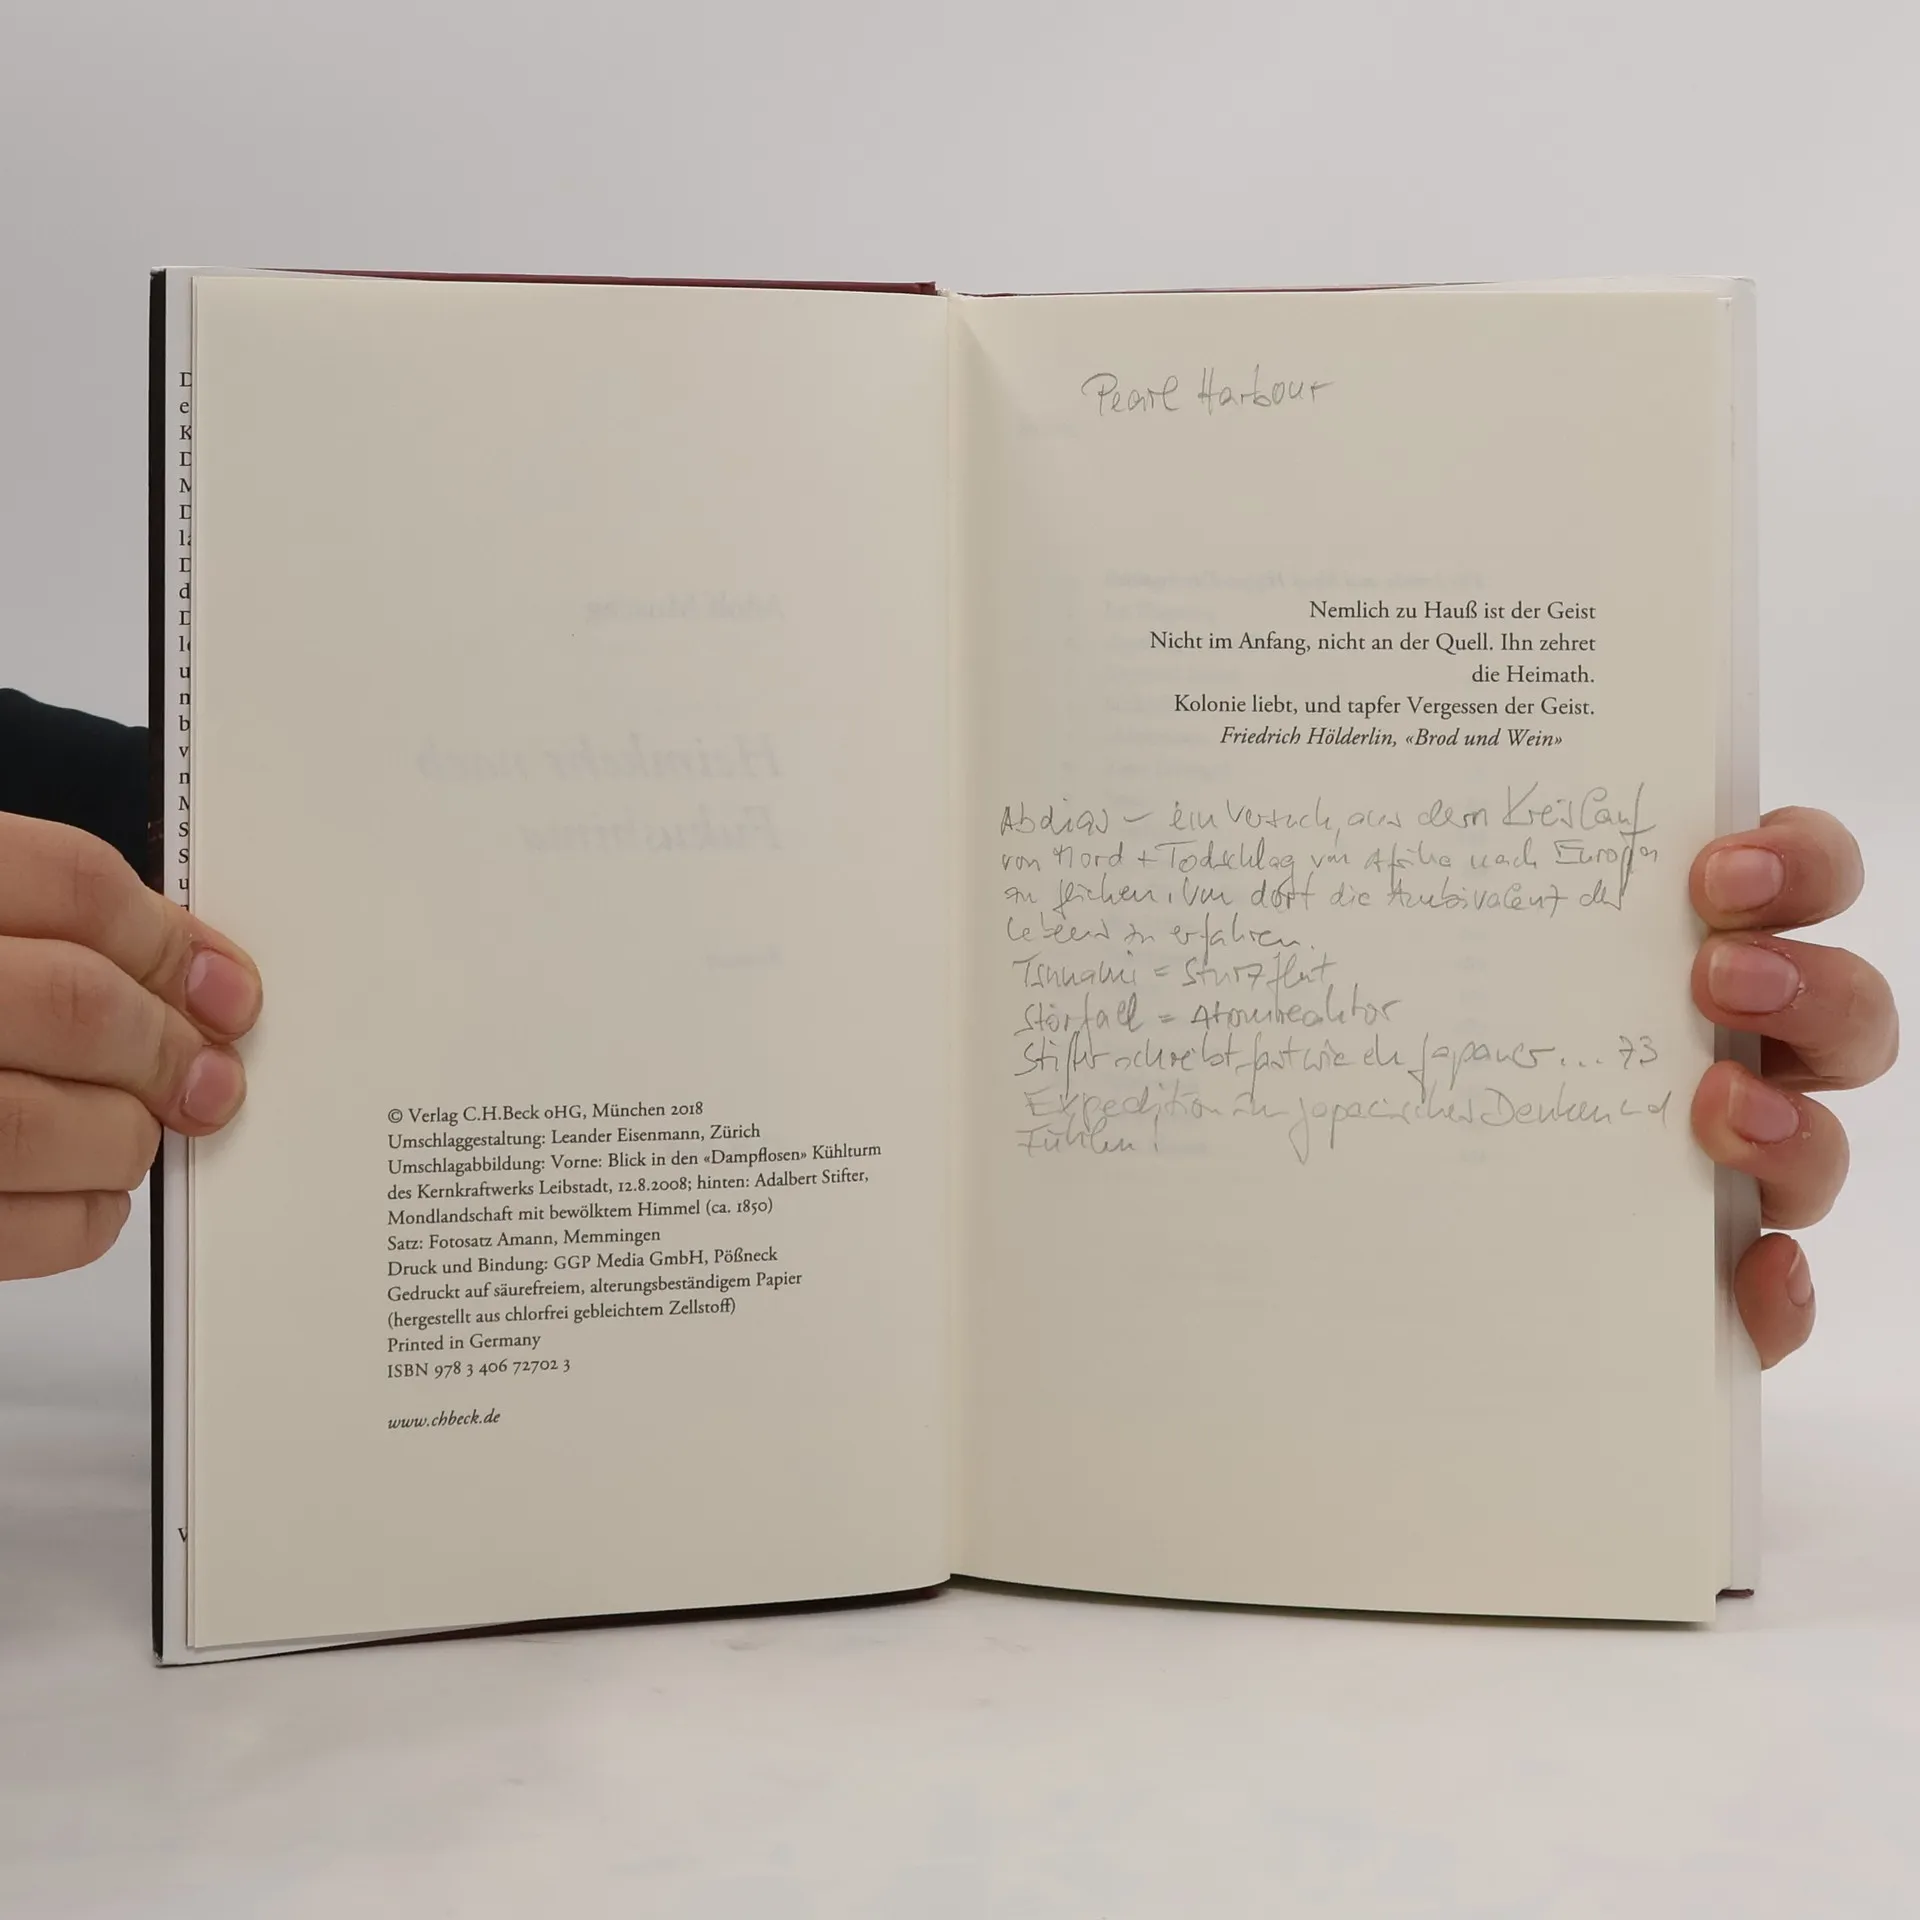 © Verlag C.H.Beck oHG, München 2018
Umschlaggestaltung: Leander Eisenmann, Zürich
Umschlagabbildung: Vorne: Blick in den «Dampflosen» Kühlturm
des Kernkraftwerks Leibstadt, 12.8.2008; hinten: Adalbert Stifter,
Mondlandschaft mit bewölktem Himmel (ca. 1850)
Satz: Fotosatz Amann, Memmingen
Druck und Bindung: GGP Media GmbH, Pößneck
Gedruckt auf säurefreiem, alterungsbeständigem Papier
(hergestellt aus chlorfrei gebleichtem Zellstoff)
Printed in Germany
ISBN 978 3 406 72702 3
www.chbeck.de
Pearl Harbour
Nemlich zu Hauß ist der Geist
Nicht im Anfang, nicht an der Quell. Ihn zehret
die Heimath.
Kolonie liebt, und tapfer Vergessen der Geist.
Friedrich Hölderlin, «Brod und Wein»
Abdias – ein Versuch, aus dem Kreislauf
von Mord + Todschlag von Afrika nach Europa
zu fliehen, von dort die Ambivalenz des
Lebens zu erfahren.
Tsunami = Sturzflut
Störfall = Atomreaktor
Stifter schreibt fast wie ein Japaner... 73
Expedition in japanisches Denken und
Fühlen!